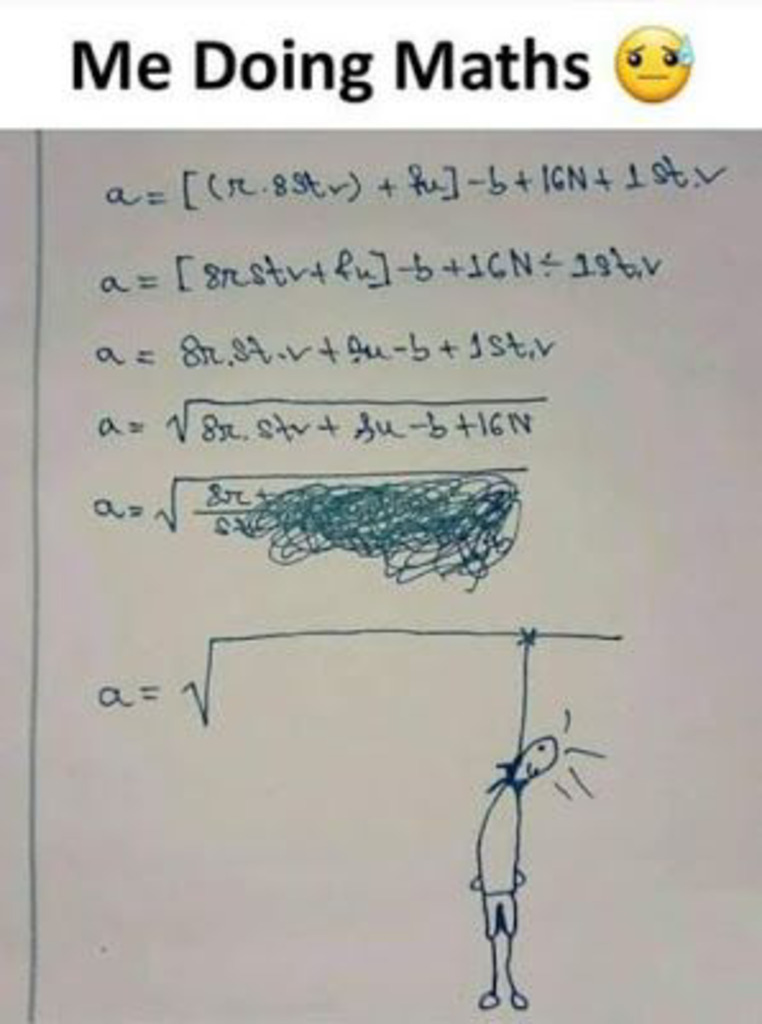 Me Doing Maths 😓
a = [(r.8st v) + fu] - b + 16N + 1 st.v
a = [8r stv + fu] - b + 16N ÷ 1st.v
a = 8r.st.v + fu - b + 1st.v
a = √8r. stv + fu - b + 16N
a = √8r +
a = √